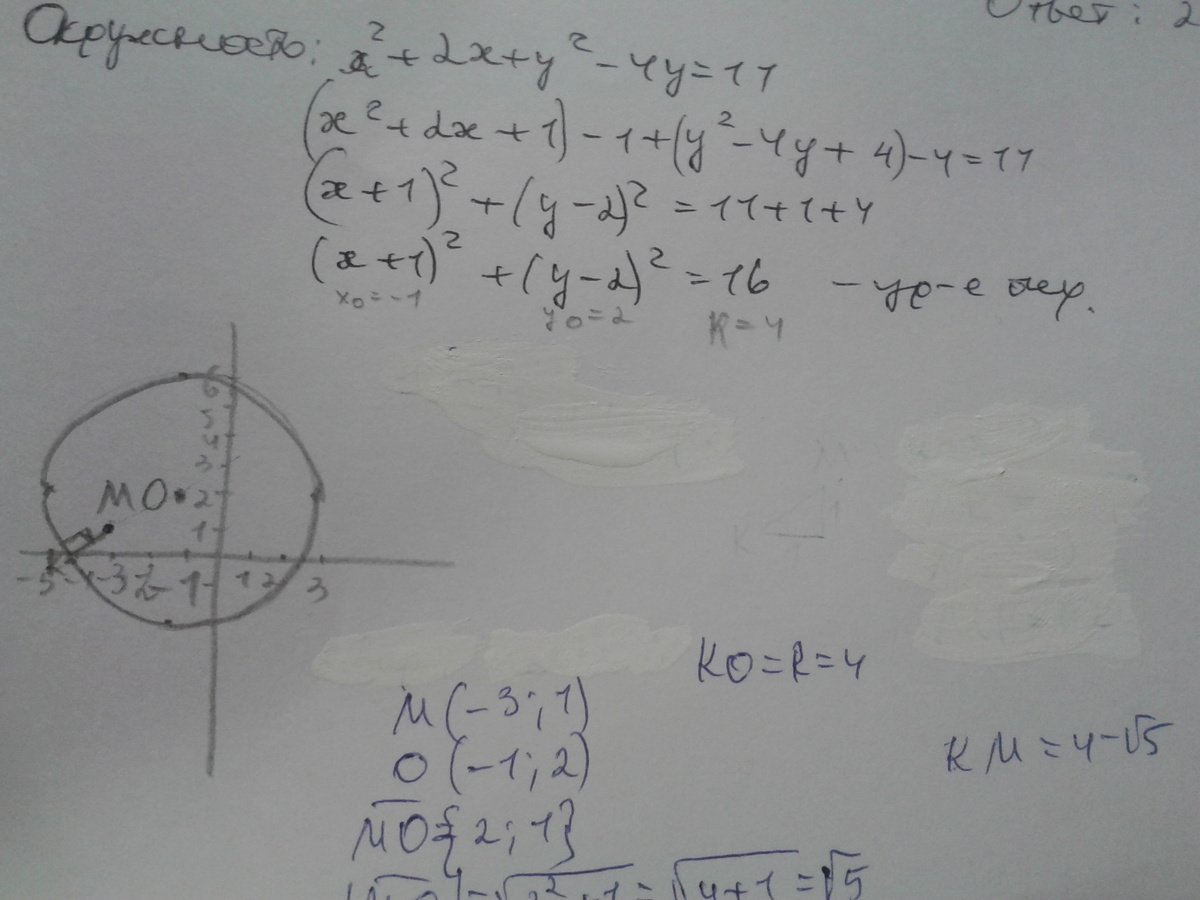 Ответ: 2
Окружность: x² + 2x + y² - 4y = 11
(x² + 2x + 1) - 1 + (y² - 4y + 4) - 4 = 11
(x + 1)² + (y - 2)² = 11 + 1 + 4
(x + 1)² + (y - 2)² = 16 - ур-е окр.
x₀ = -1 y₀ = 2 R = 4
6
5
4
3
M O 2
1
K
-5 -4 -3 -2 -1 1 2 3
KO = R = 4
M (-3; 1)
O (-1; 2)
KM = 4 - √5
MO = {2; 1}
|MO| = √2² + 1 = √4 + 1 = √5